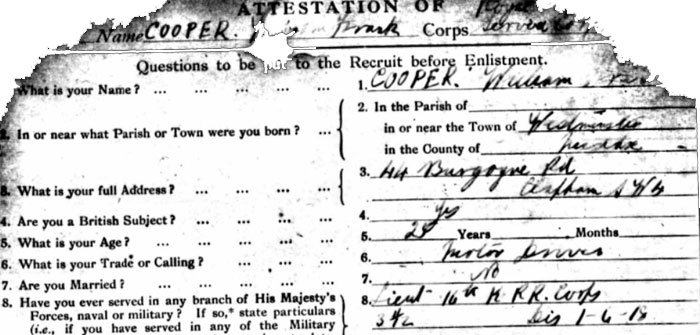 ATTESTATION OF
Name COOPER. Frank Corps Royal
Questions to be put to the Recruit before Enlistment.
What is your Name? ... ... ... ... 1. COOPER. William
2. In the Parish of
In or near what Parish or Town were you born? ... in or near the Town of Westminster
in the County of
3. What is your full Address? ... ... ... ... 3. 44 Burgoyne Rd
Clapham S W
4. Are you a British Subject? ... ... ... 4. Yes
5. What is your Age? ... ... ... ... 5. Years Months
6. What is your Trade or Calling? ... ... ... 6. Motor Driver
7. Are you Married? ... ... ... ... 7. No
8. Have you ever served in any branch of His Majesty's 8. Lieut - 16th K.R.R. Corps
Forces, naval or military? If so,* state particulars 3 Dis 1-6-18
(i.e., if you have served in any of the Military